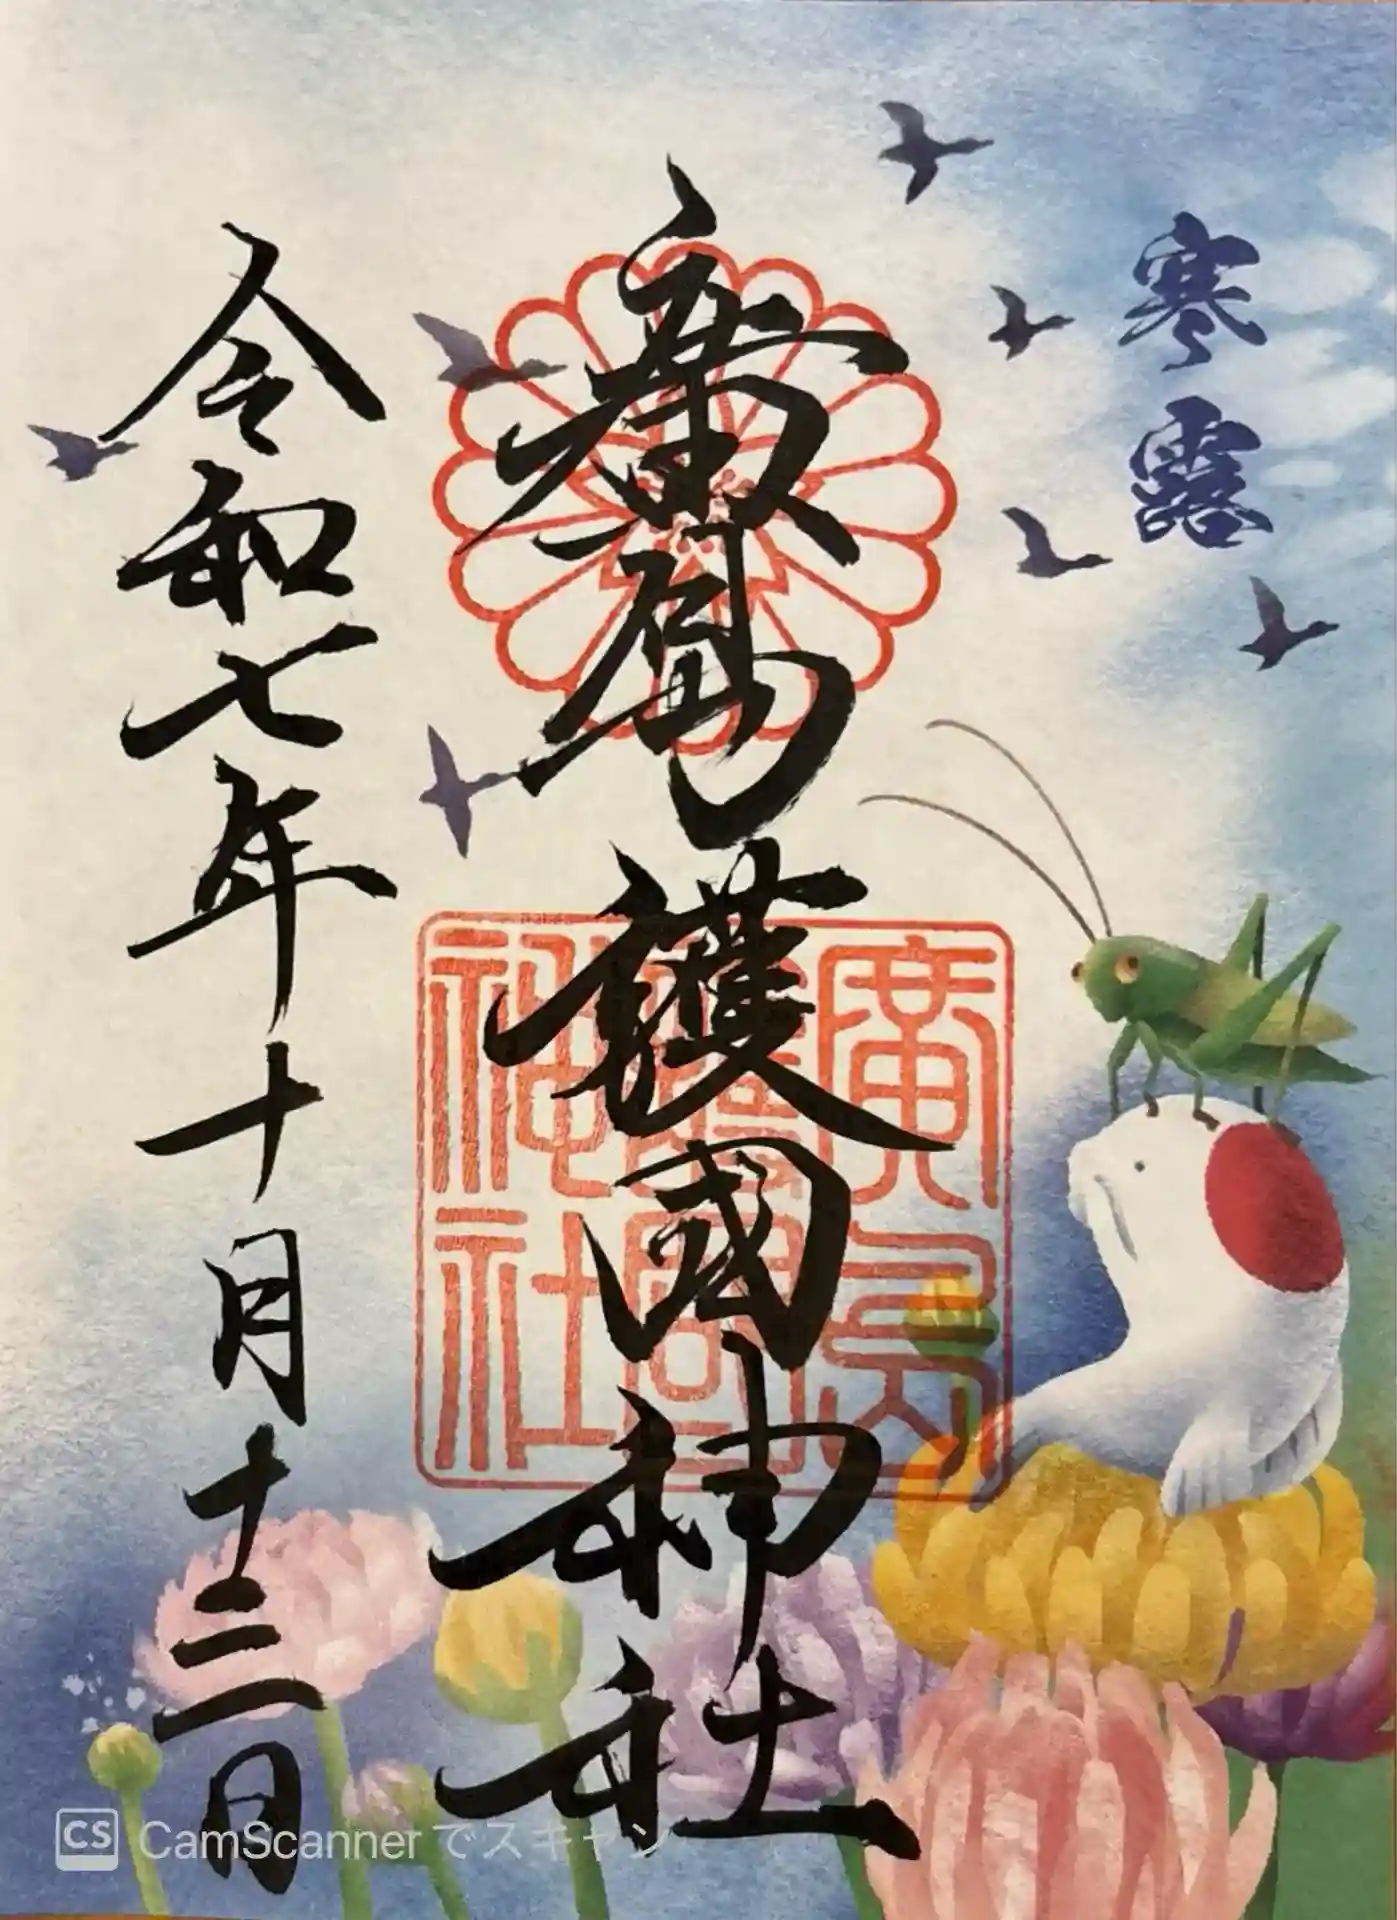 寒露
廣島護國神社
廣島
護國
神社
令和七年十月十三日
CS CamScanner でスキャン